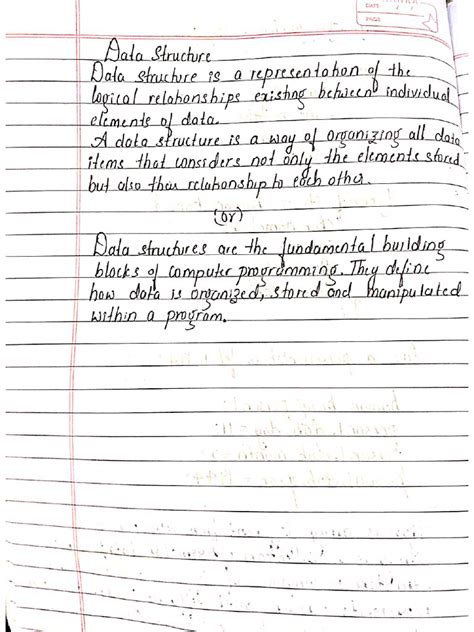 DATE
PAGE
Data Structure
Data structure is a representation of the
logical relationships existing between individual
elements of data.
A data structure is a way of organizing all data
items that considers not only the elements stored
but also their relationship to each other.
(or)
Data structures are the fundamental building
blocks of computer programming. They define
how data is organized, stored and manipulated
within a program.